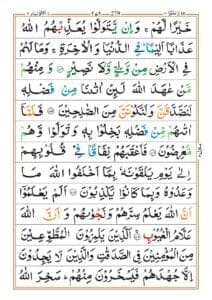 خَيْرًا لَّهُمْ ۚ وَاِنْ يَّتَوَلَّوْا يُعَذِّبْهُمُ اللّٰهُ
عَذَابًا اَلِيْمًا فِى الدُّنْيَا وَالْاٰخِرَةِ ۚ وَمَا لَهُمْ
فِى الْاَرْضِ مِنْ وَّلِيٍّ وَّلَا نَصِيْرٍ ۝ وَمِنْهُمْ
مَّنْ عٰهَدَ اللّٰهَ لَئِنْ اٰتٰىنَا مِنْ فَضْلِهٖ
لَنَصَّدَّقَنَّ وَلَنَكُوْنَنَّ مِنَ الصّٰلِحِيْنَ ۝ فَلَمَّآ
اٰتٰىهُمْ مِّنْ فَضْلِهٖ بَخِلُوْا بِهٖ وَتَوَلَّوْا وَّهُمْ
مُّعْرِضُوْنَ ۝ فَاَعْقَبَهُمْ نِفَاقًا فِيْ قُلُوْبِهِمْ
اِلٰى يَوْمِ يَلْقَوْنَهٗ بِمَآ اَخْلَفُوا اللّٰهَ مَا
وَعَدُوْهُ وَبِمَا كَانُوْا يَكْذِبُوْنَ ۝ اَلَمْ يَعْلَمُوْٓا
اَنَّ اللّٰهَ يَعْلَمُ سِرَّهُمْ وَنَجْوٰىهُمْ وَاَنَّ اللّٰهَ
عَلَّامُ الْغُيُوْبِ ۝ اَلَّذِيْنَ يَلْمِزُوْنَ الْمُطَّوِّعِيْنَ
مِنَ الْمُؤْمِنِيْنَ فِى الصَّدَقٰتِ وَالَّذِيْنَ لَا يَجِدُوْنَ
اِلَّا جُهْدَهُمْ فَيَسْخَرُوْنَ مِنْهُمْ ۭ سَخِرَ اللّٰهُ